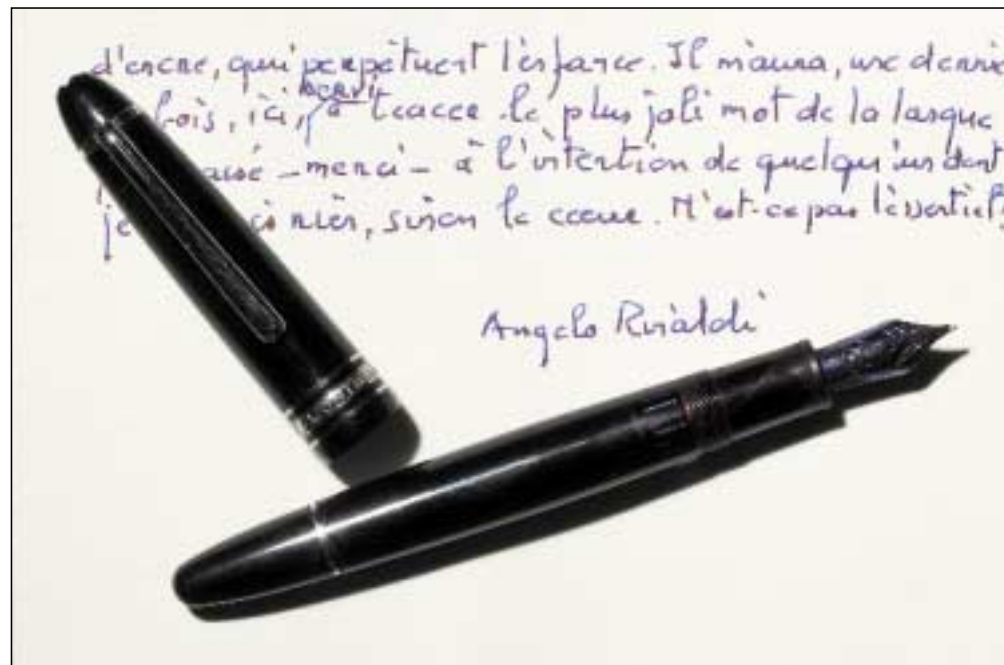 d'encre, qui perpétuent l'enfance. Il m'aura, une derniè
fois, ici, servi à tracer le plus joli mot de la langue
merci – à l'intention de quelqu'un dont
je nier, sinon le coeur. N'est-ce pas l'essentiel,
Angelo Rinaldi